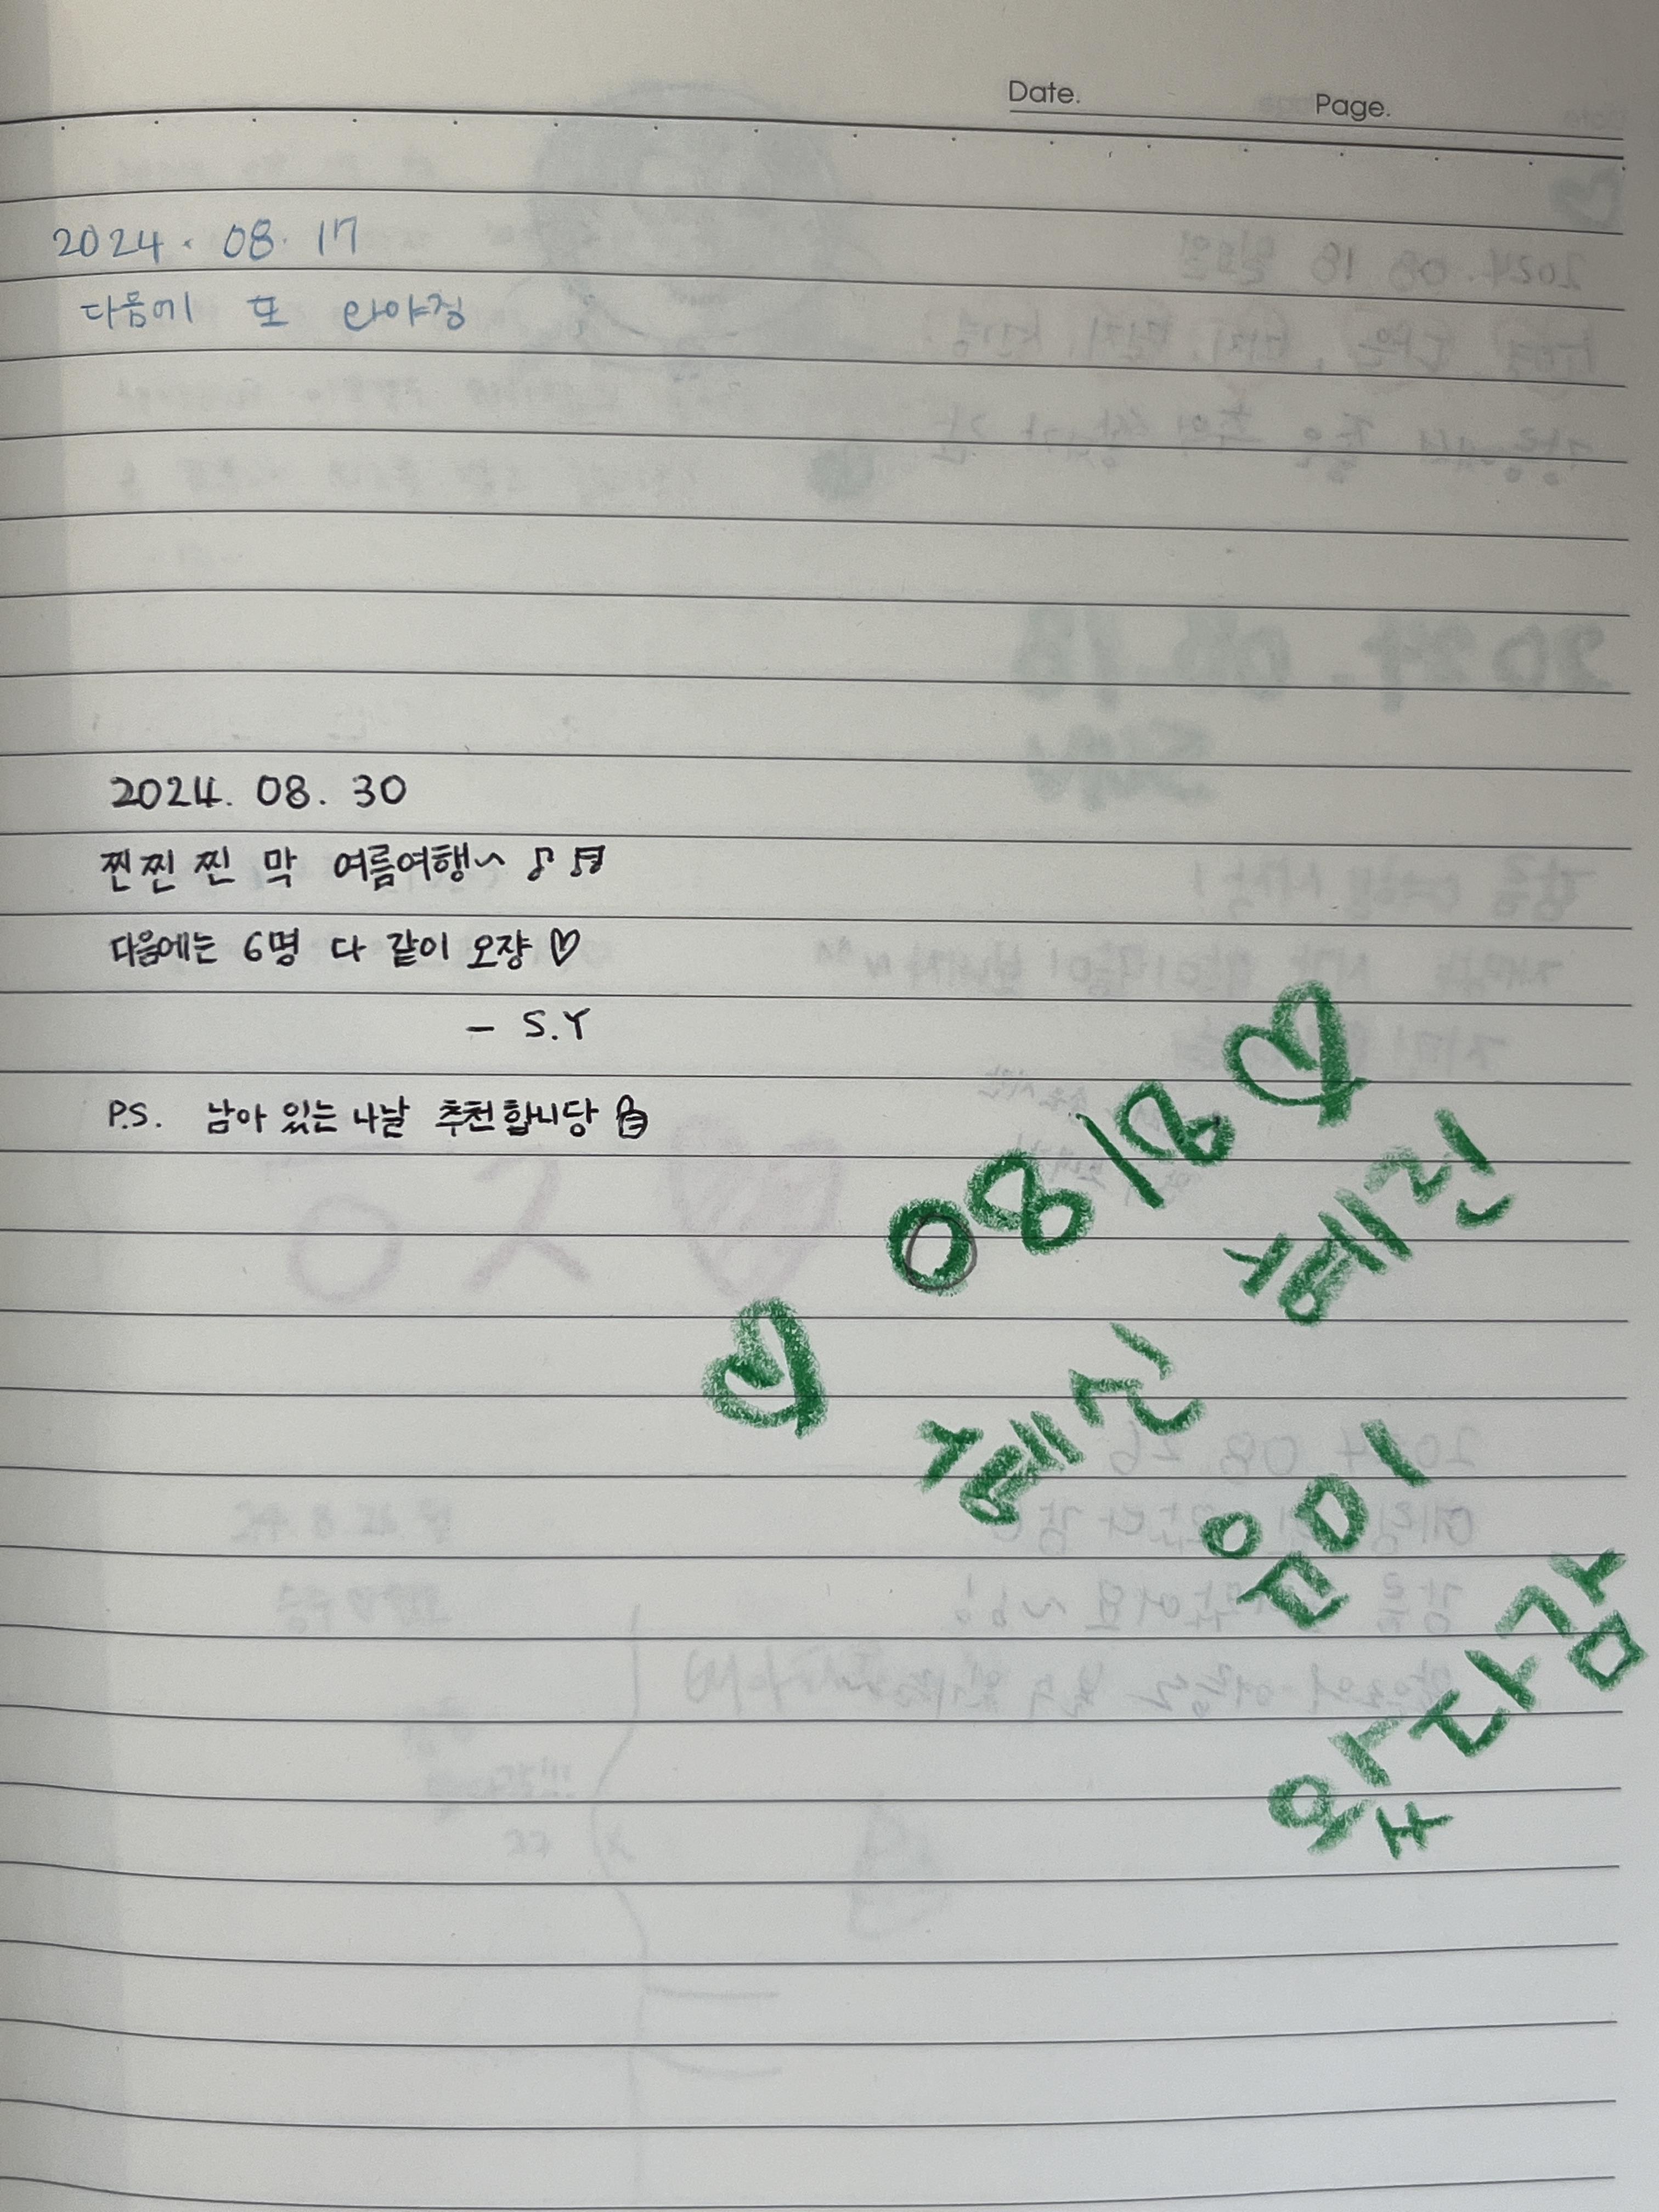 Date. Page.
2024. 08. 17
다음에 또 와야징
2024. 08. 30
찐찐찐 막 여름여행~ ♪ ♬
다음에는 6명 다 같이 오쟝 ♡
- S.Y
P.S. 남아 있는 나날 추천합니당 👍
♡ 0818 ♡
혜진 혜진
윤미
왔다감